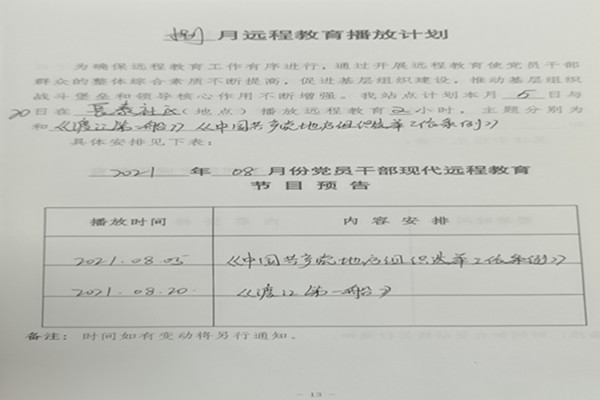 捌月远程教育播放计划
为确保远程教育工作有序进行，通过开展远程教育使党员干部
群众的整体综合素质不断提高，促进基层组织建设，推动基层组织
战斗堡垒和领导核心作用不断增强。我站点计划本月5日与
20日在 社区(地点)播放远程教育2小时，主题分别为
和《渡江第一船》《中国共产党地方组织选举工作条例》
具体安排见下表：
2021年08月份党员干部现代远程教育
节目预告
播放时间 内容安排
2021.08.05 《中国共产党地方组织选举工作条例》
2021.08.20 《渡江第一船》
备注：时间如有变动将另行通知。
- 13 -